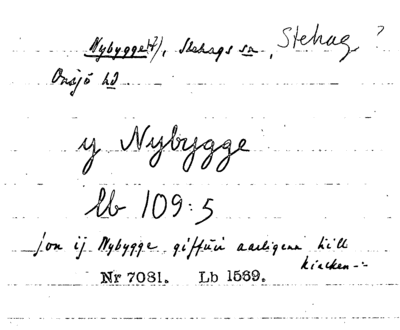 Nybygget(?), Stehags sn, Stehag ?
Onsjö hd
y Nybygge
lb 109:5
Jon ij Nybygge giffui aarligenn till
kircken -:-
Nr 7081. Lb 1569.